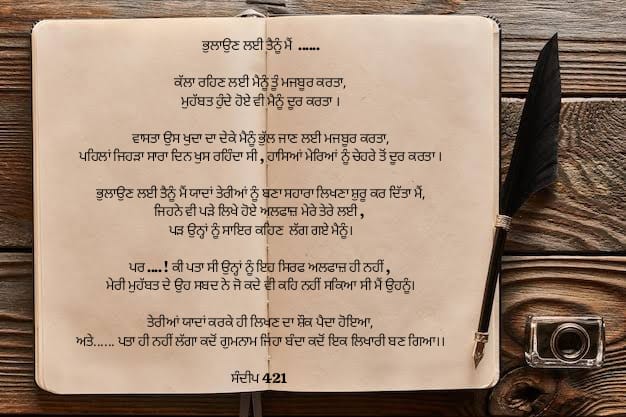 ਭੁਲਾਉਣ ਲਈ ਤੈਨੂੰ ਮੈਂ ......
ਕੱਲਾ ਰਹਿਣ ਲਈ ਮੈਨੂੰ ਤੂੰ ਮਜਬੂਰ ਕਰਤਾ,
ਮੁਹੱਬਤ ਹੁੰਦੇ ਹੋਏ ਵੀ ਮੈਨੂੰ ਦੂਰ ਕਰਤਾ ।
ਵਾਸਤਾ ਉਸ ਖੁਦਾ ਦਾ ਦੇਕੇ ਮੈਨੂੰ ਭੁੱਲ ਜਾਣ ਲਈ ਮਜਬੂਰ ਕਰਤਾ,
ਪਹਿਲਾਂ ਜਿਹੜਾ ਸਾਰਾ ਦਿਨ ਖੁਸ ਰਹਿੰਦਾ ਸੀ , ਹਾਸਿਆਂ ਮੇਰਿਆਂ ਨੂੰ ਚੇਹਰੇ ਤੋਂ ਦੂਰ ਕਰਤਾ ।
ਭੁਲਾਉਣ ਲਈ ਤੈਨੂੰ ਮੈਂ ਯਾਦਾਂ ਤੇਰੀਆਂ ਨੂੰ ਬਣਾ ਸਹਾਰਾ ਲਿਖਣਾ ਸ਼ੁਰੂ ਕਰ ਦਿੱਤਾ ਮੈਂ,
ਜਿਹਨੇ ਵੀ ਪੜੇ ਲਿਖੇ ਹੋਏ ਅਲਫਾਜ਼ ਮੇਰੇ ਤੇਰੇ ਲਈ ,
ਪੜ ਉਨ੍ਹਾਂ ਨੂੰ ਸਾਇਰ ਕਹਿਣ ਲੱਗ ਗਏ ਮੈਨੂੰ।
ਪਰ ....! ਕੀ ਪਤਾ ਸੀ ਉਨ੍ਹਾਂ ਨੂੰ ਇਹ ਸਿਰਫ ਅਲਫਾਜ਼ ਹੀ ਨਹੀਂ ,
ਮੇਰੀ ਮੁਹੱਬਤ ਦੇ ਉਹ ਸਬਦ ਨੇ ਜੋ ਕਦੇ ਵੀ ਕਹਿ ਨਹੀਂ ਸਕਿਆ ਸੀ ਮੈਂ ਉਹਨੂੰ।
ਤੇਰੀਆਂ ਯਾਦਾਂ ਕਰਕੇ ਹੀ ਲਿਖਣ ਦਾ ਸ਼ੌਕ ਪੈਦਾ ਹੋਇਆ,
ਅਤੇ...... ਪਤਾ ਹੀ ਨਹੀਂ ਲੱਗਾ ਕਦੋਂ ਗੁਮਨਾਮ ਜਿਹਾ ਬੰਦਾ ਕਦੋਂ ਇਕ ਲਿਖਾਰੀ ਬਣ ਗਿਆ।।
ਸੰਦੀਪ 421